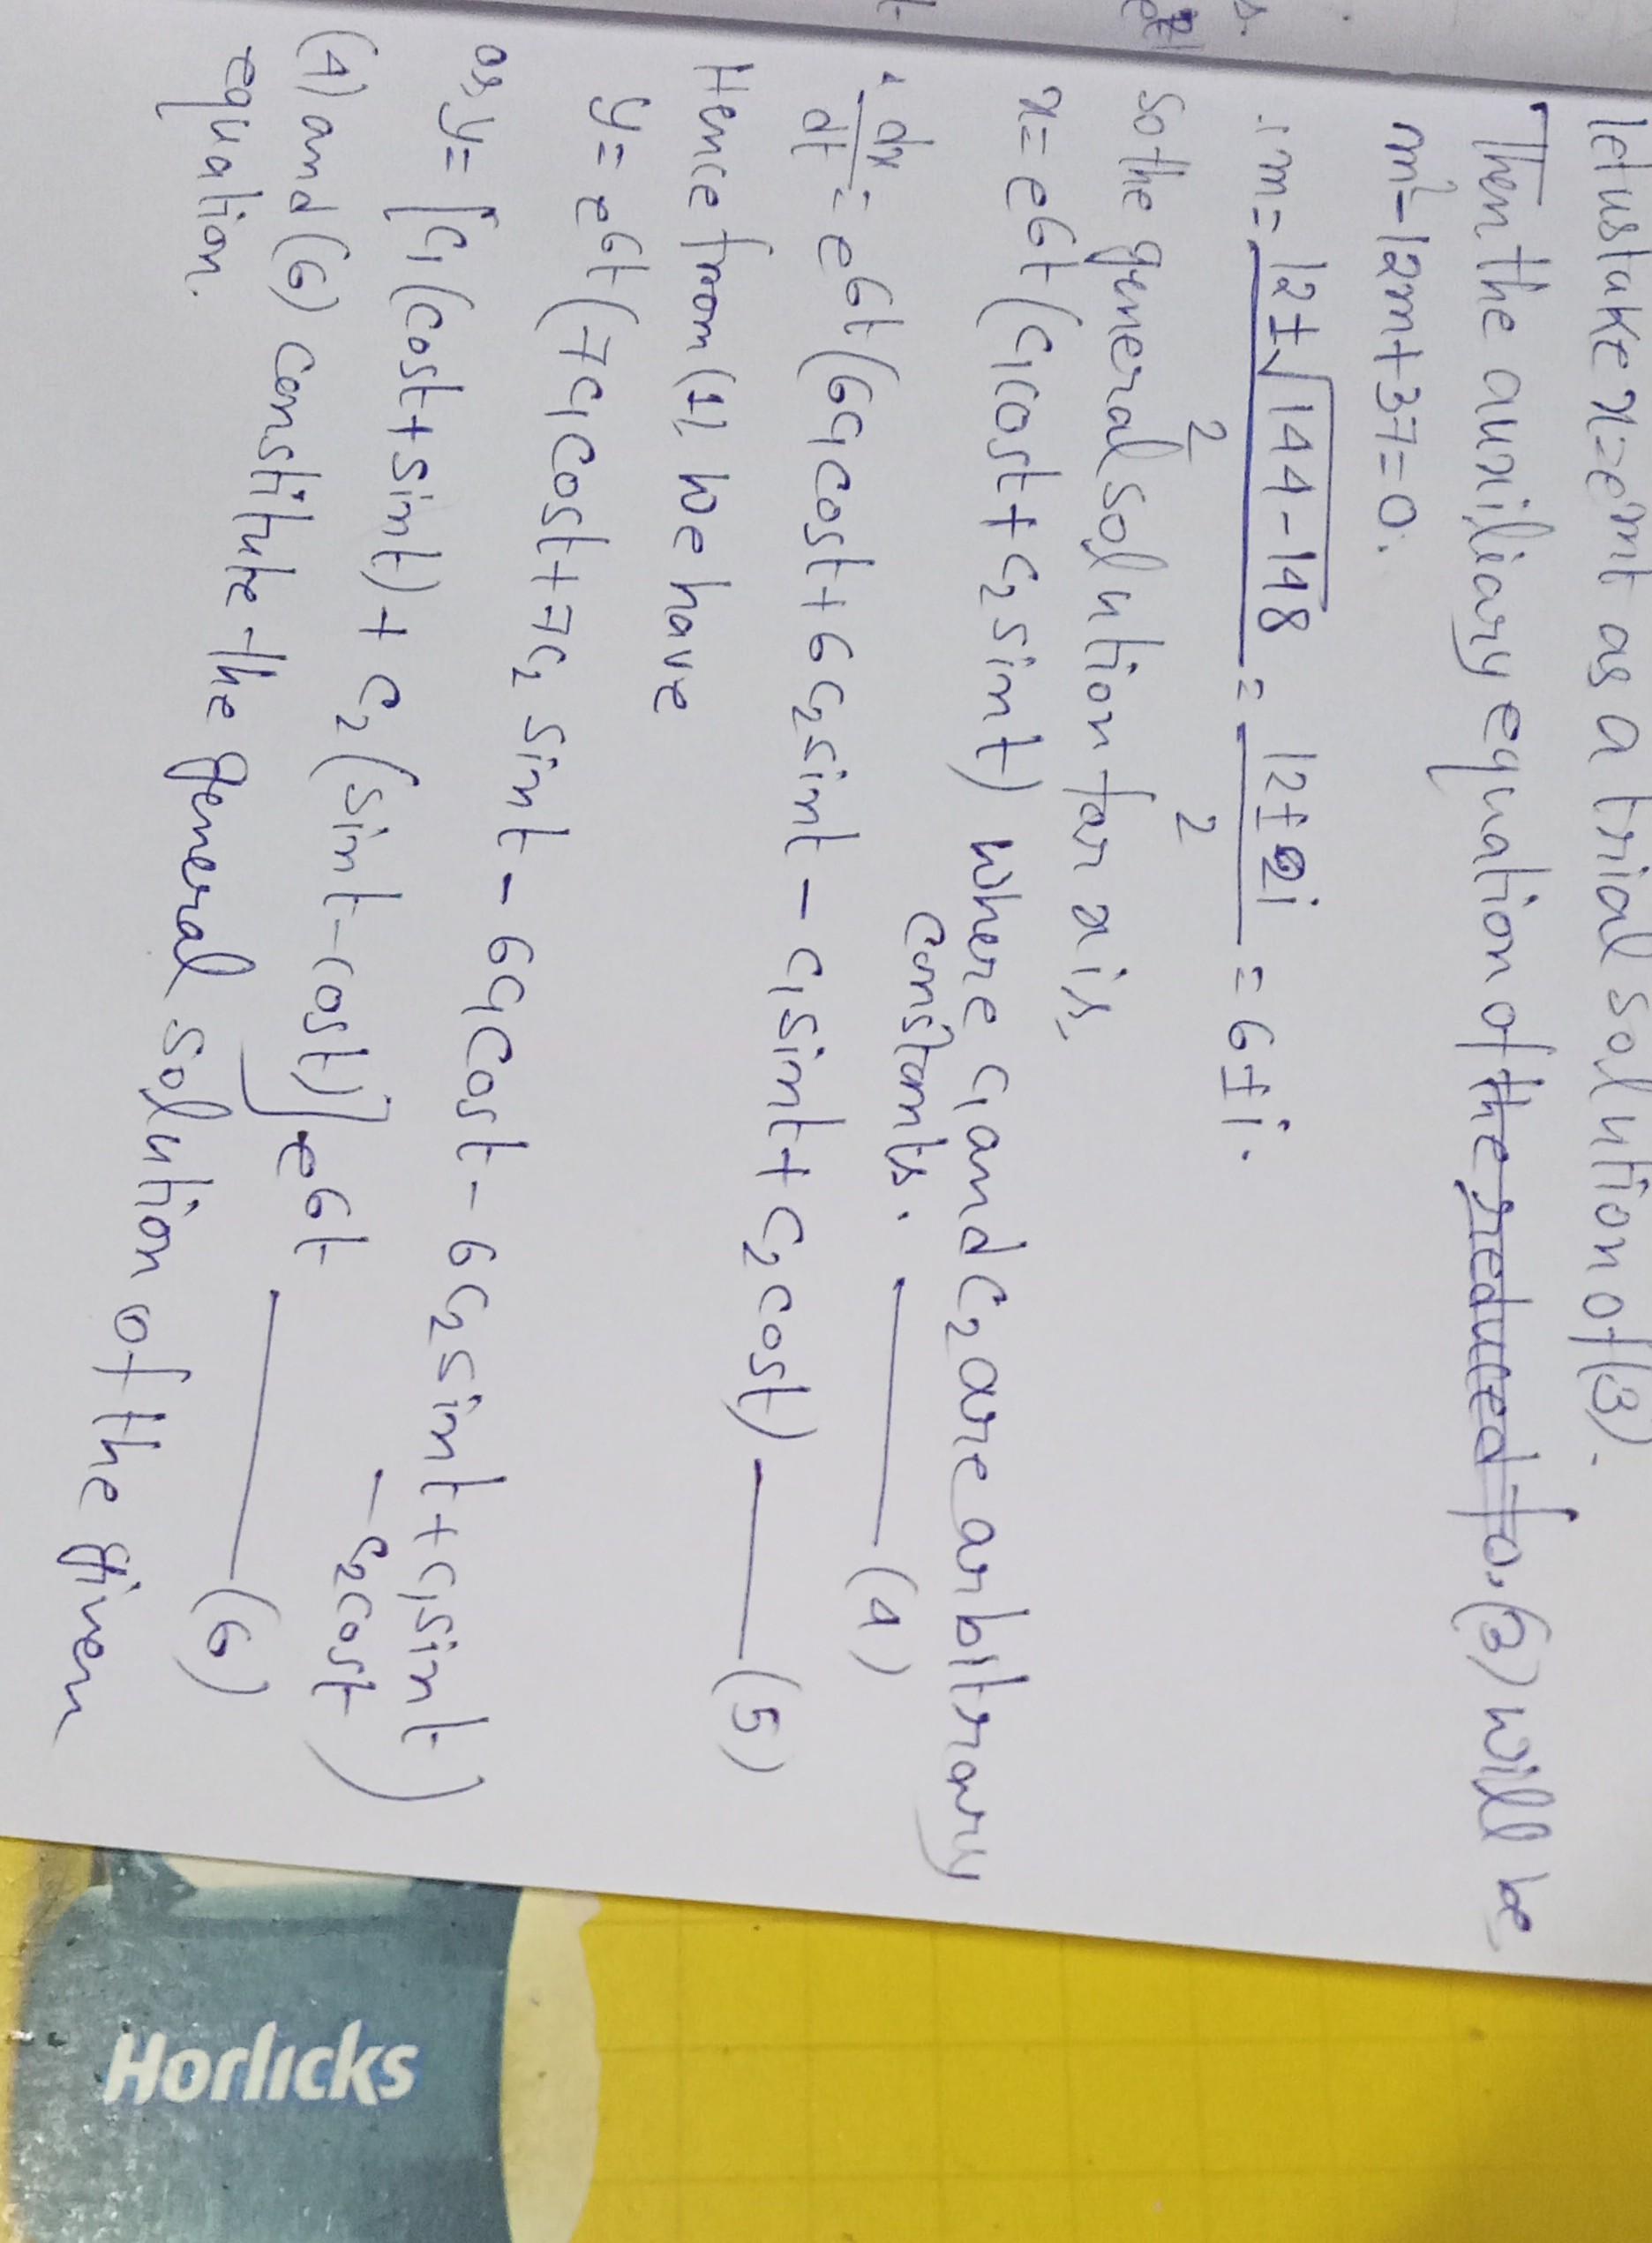 let us take x=e^mt as a trial solution of (3).
Then the auxiliary equation of (3) will be
m²-12m+37=0.
∴ m= 12±√144-148 / 2 = 12±2i / 2 = 6±i.
So the general solution for x is,
x= e^6t (c₁cost+c₂sint) where c₁ and c₂ are arbitrary
constants. —— (4)
dx/dt = e^6t (6c₁cost+6c₂sint - c₁sint+c₂cost) —— (5)
Hence from (1), we have
y= e^6t (7c₁cost+7c₂ sint - 6c₁cost - 6c₂sint+c₁sint
-c₂cost)
or, y= [c₁(cost+sint)+c₂(sint-cost)]e^6t —— (6)
(4) and (6) constitute the general solution of the given
equation.
Horlicks